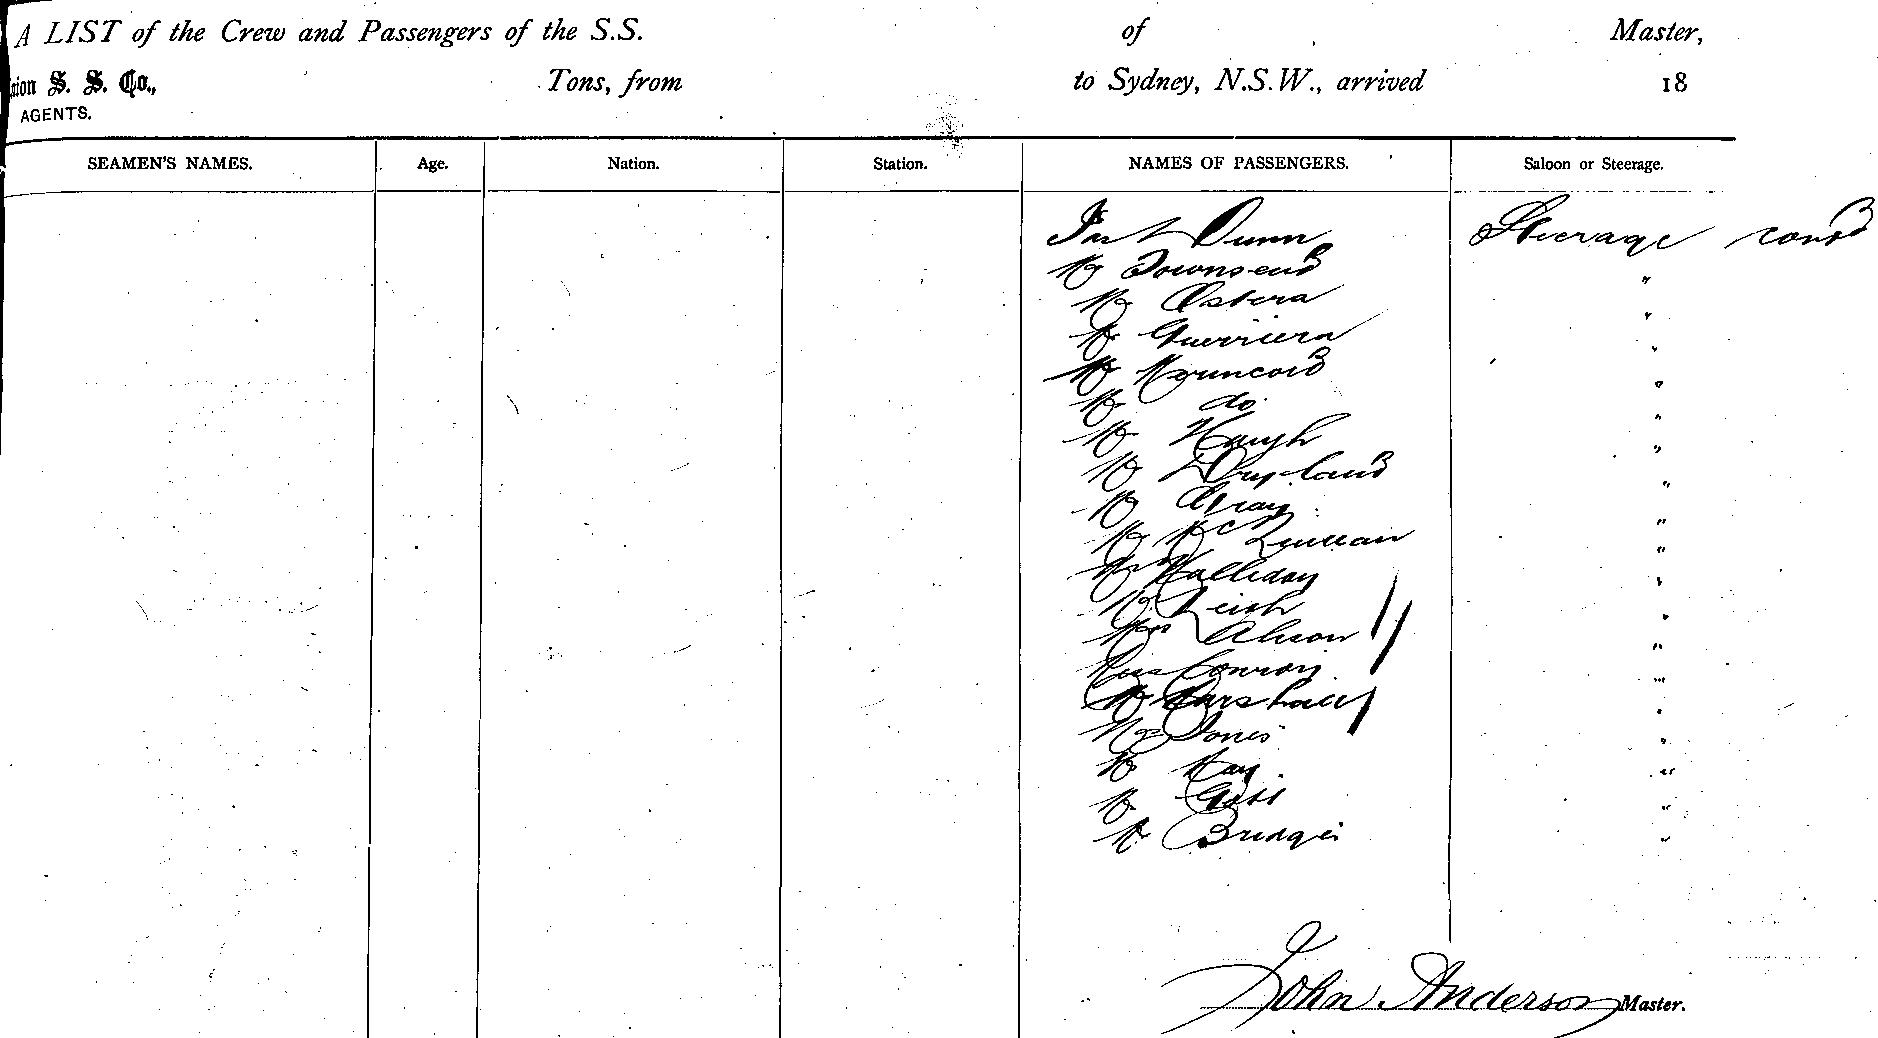 A LIST of the Crew and Passengers of the S.S. of Master,
S. S. Co., Tons, from to Sydney, N.S.W., arrived 18
AGENTS.
SEAMEN'S NAMES. Age. Nation. Station. NAMES OF PASSENGERS. Saloon or Steerage.
Dunn Steerage cont'd
Mr Townsend "
Mr "
Mr Guerriera "
Mr "
Mr do "
Mr Haugh "
Mr Dryland "
Mr Gray "
Mr Mc "
Mr Halliday "
Mr Leish "
Mrs Alison "
Miss Conroy "
Mr Marshall "
Mr Jones "
Mr May "
Mr "
Mr Bridges "
John Anderson Master.